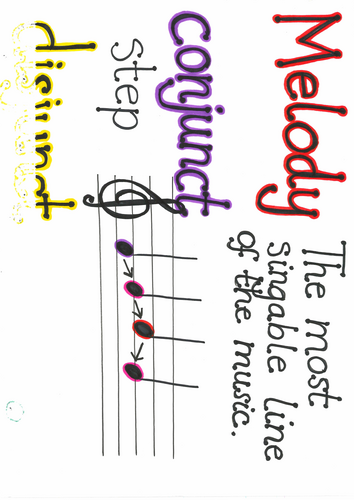 Melody
The most
singable line
of the music.
conjunct
step
disjunct